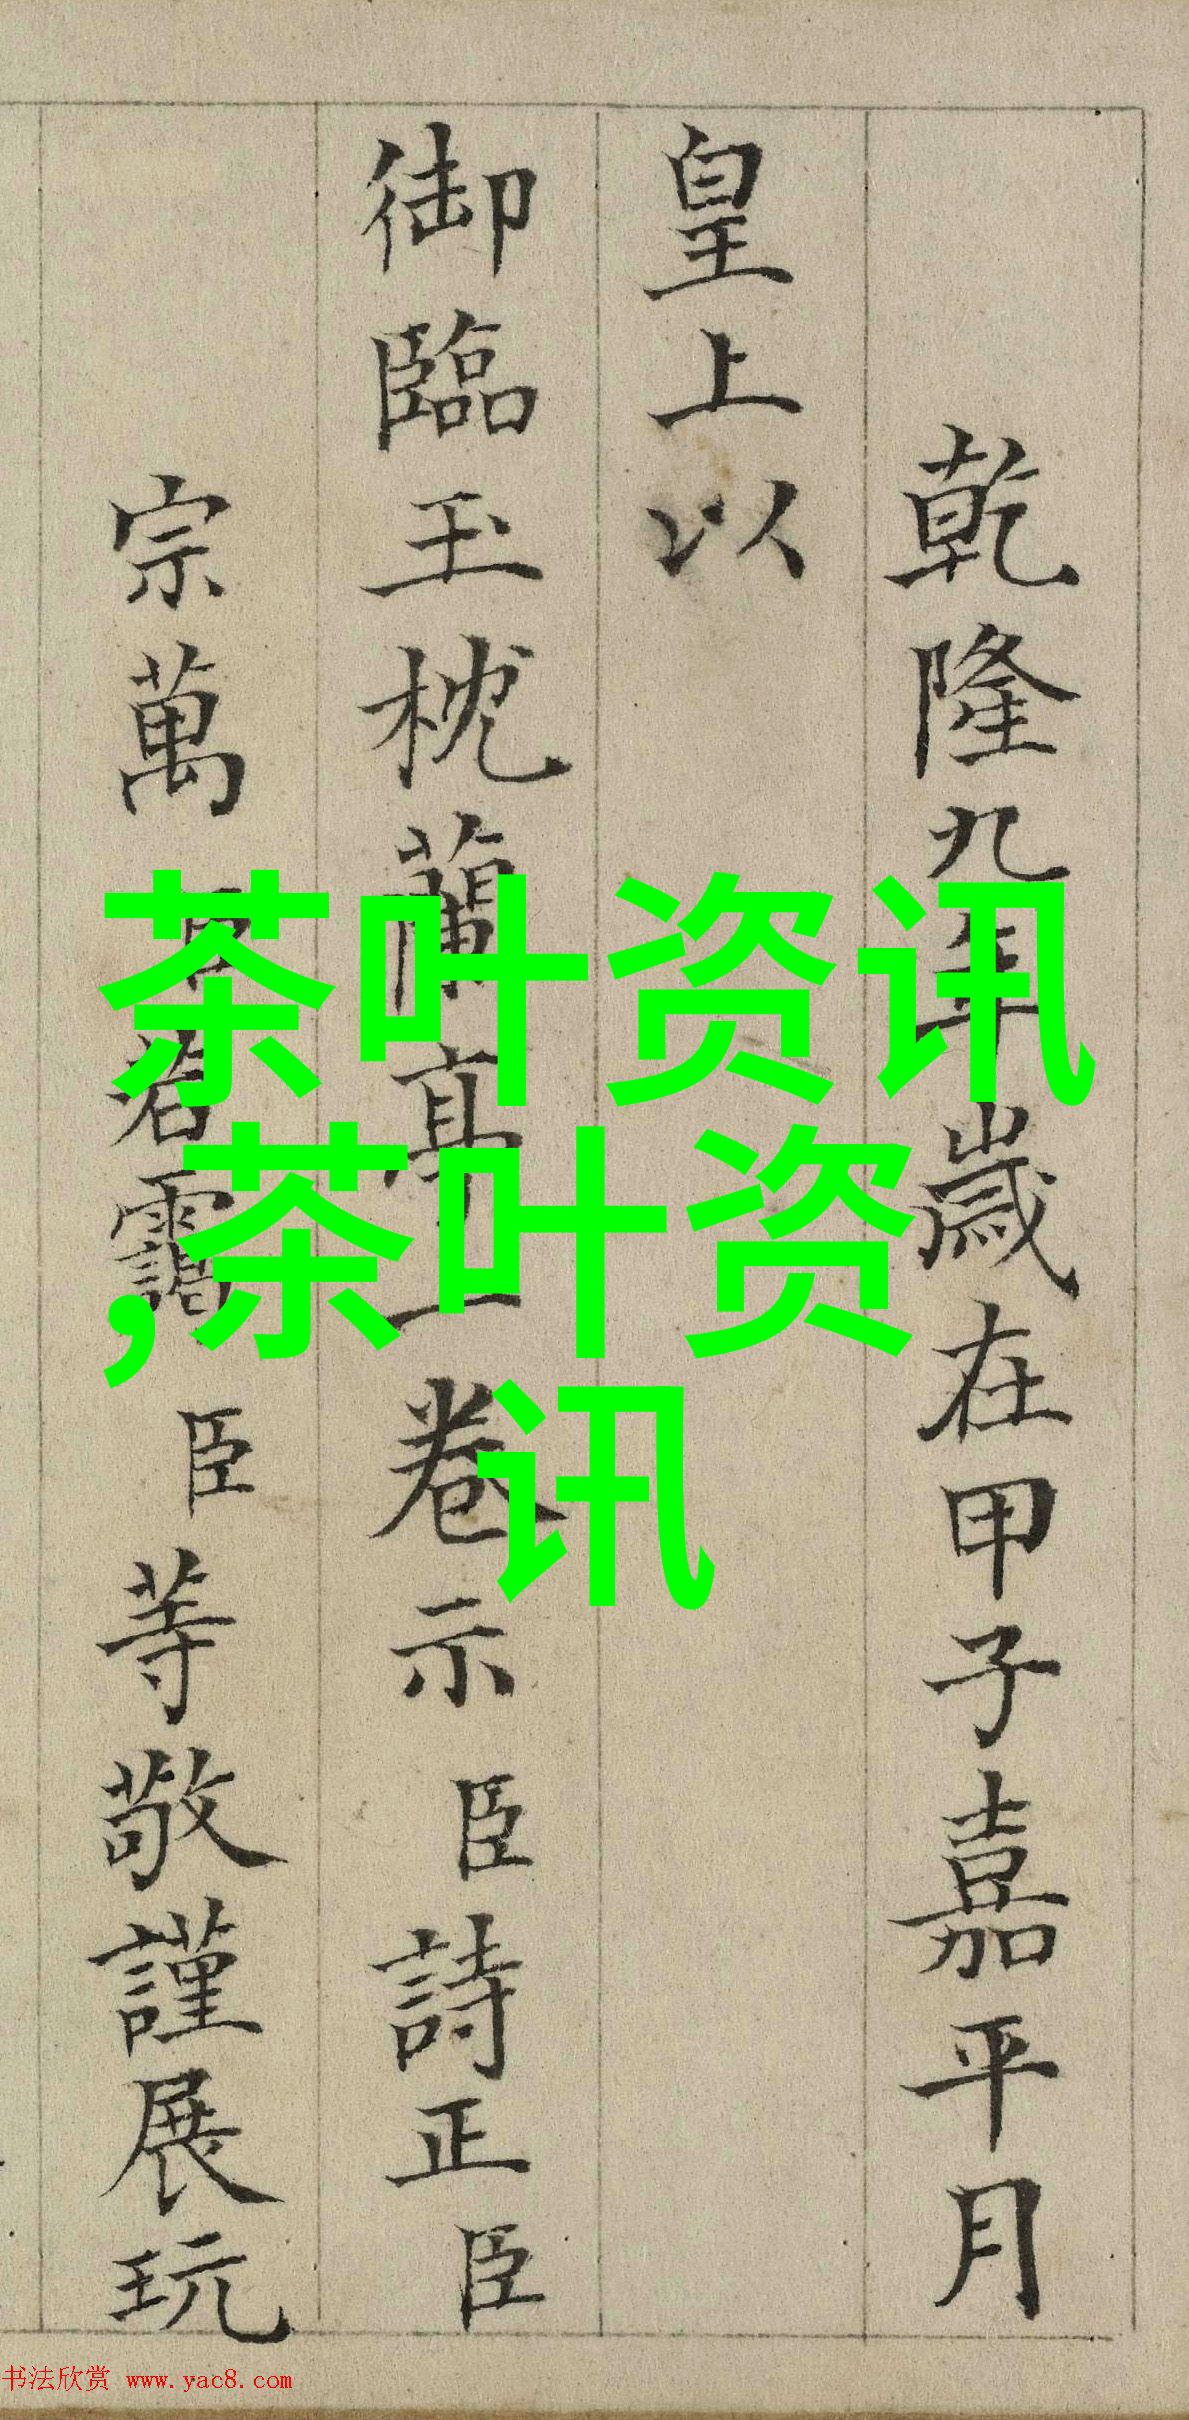 乾隆九年歲在甲子嘉平月
皇上以
御臨玉枕蘭亭一卷示臣詩正臣
宗萬臣若靄臣等敬謹展玩
茶叶资讯
,茶叶资
讯
书法欣赏 www.yac8.com